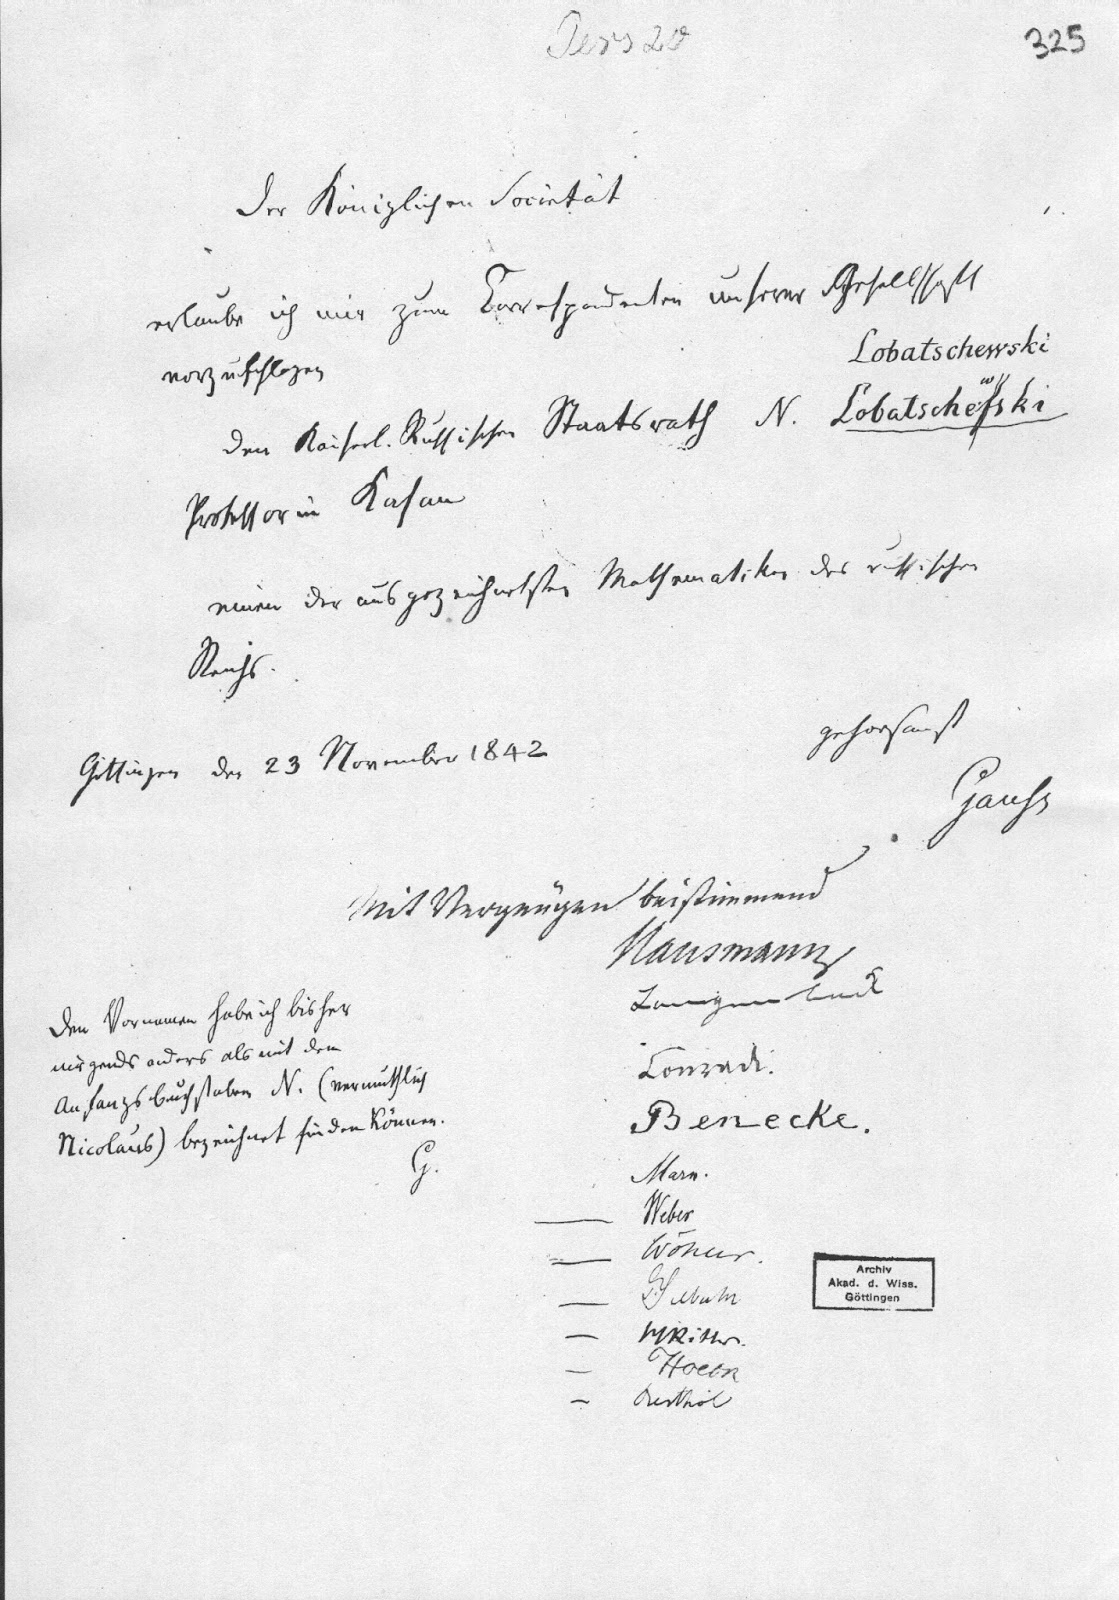 Pers 20
325
Der Königlichen Societät
erlaube ich mir zum Correspondenten unserer Gesellschaft
vorzuschlagen
Lobatschewski
den Kaiserl. Russischen Staatsrath N. Lobatschefski
w
Professor in Kasan
einen der ausgezeichnetsten Mathematiker des russischen
Reichs.
gehorsamst
Göttingen den 23 November 1842
Gauß
Mit Vergnügen beistimmend
Hausmann
Langenbeck
Den Vornamen habe ich bisher
nirgends anders als mit dem
Anfangsbuchstaben N. (vermuthlich
Nicolaus) bezeichnet finden können.
G.
Conradi.
Benecke.
Marx.
— Weber
— Wöhler.
—
— Ritter.
— Hoeck
— Berthold
Archiv
Akad. d. Wiss.
Göttingen